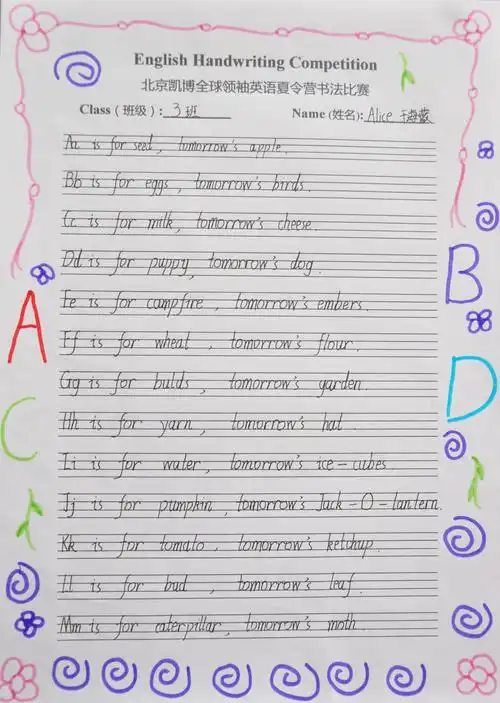 English Handwriting Competition
北京凯博全球领袖英语夏令营书法比赛
Class (班级): 3班 Name (姓名): Alice
Aa is for seed, tomorrow's apple.
Bb is for eggs, tomorrow's birds.
Cc is for milk, tomorrow's cheese.
Dd is for puppy, tomorrow's dog.
Ee is for campfire, tomorrow's embers.
Ff is for wheat, tomorrow's flour.
Gg is for bulds, tomorrow's garden.
Hh is for yarn, tomorrow's hat.
Ii is for water, tomorrow's ice-cubes.
Jj is for pumpkin, tomorrow's Jack-O-lantern.
Kk is for tomato, tomorrow's ketchup.
Ll is for bud, tomorrow's leaf.
Mm is for caterpillar, tomorrow's moth.
A
B
C
D